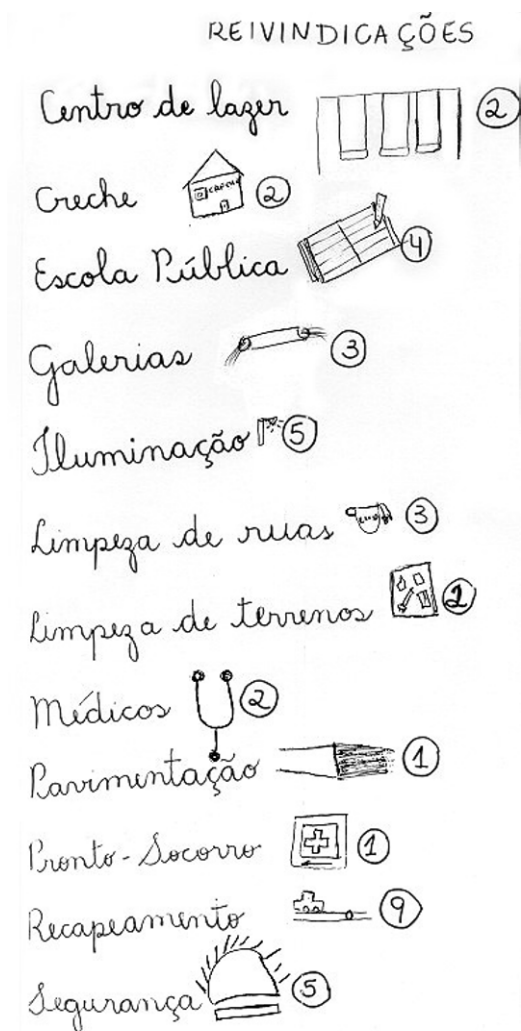 REIVINDICAÇÕES
Centro de lazer 2
Creche CRECHE 2
Escola Pública 4
Galerias 3
Iluminação 5
Limpeza de ruas 3
Limpeza de terrenos
Médicos 2
Pavimentação 1
Pronto-Socorro 1
Recapeamento 9
Segurança 5